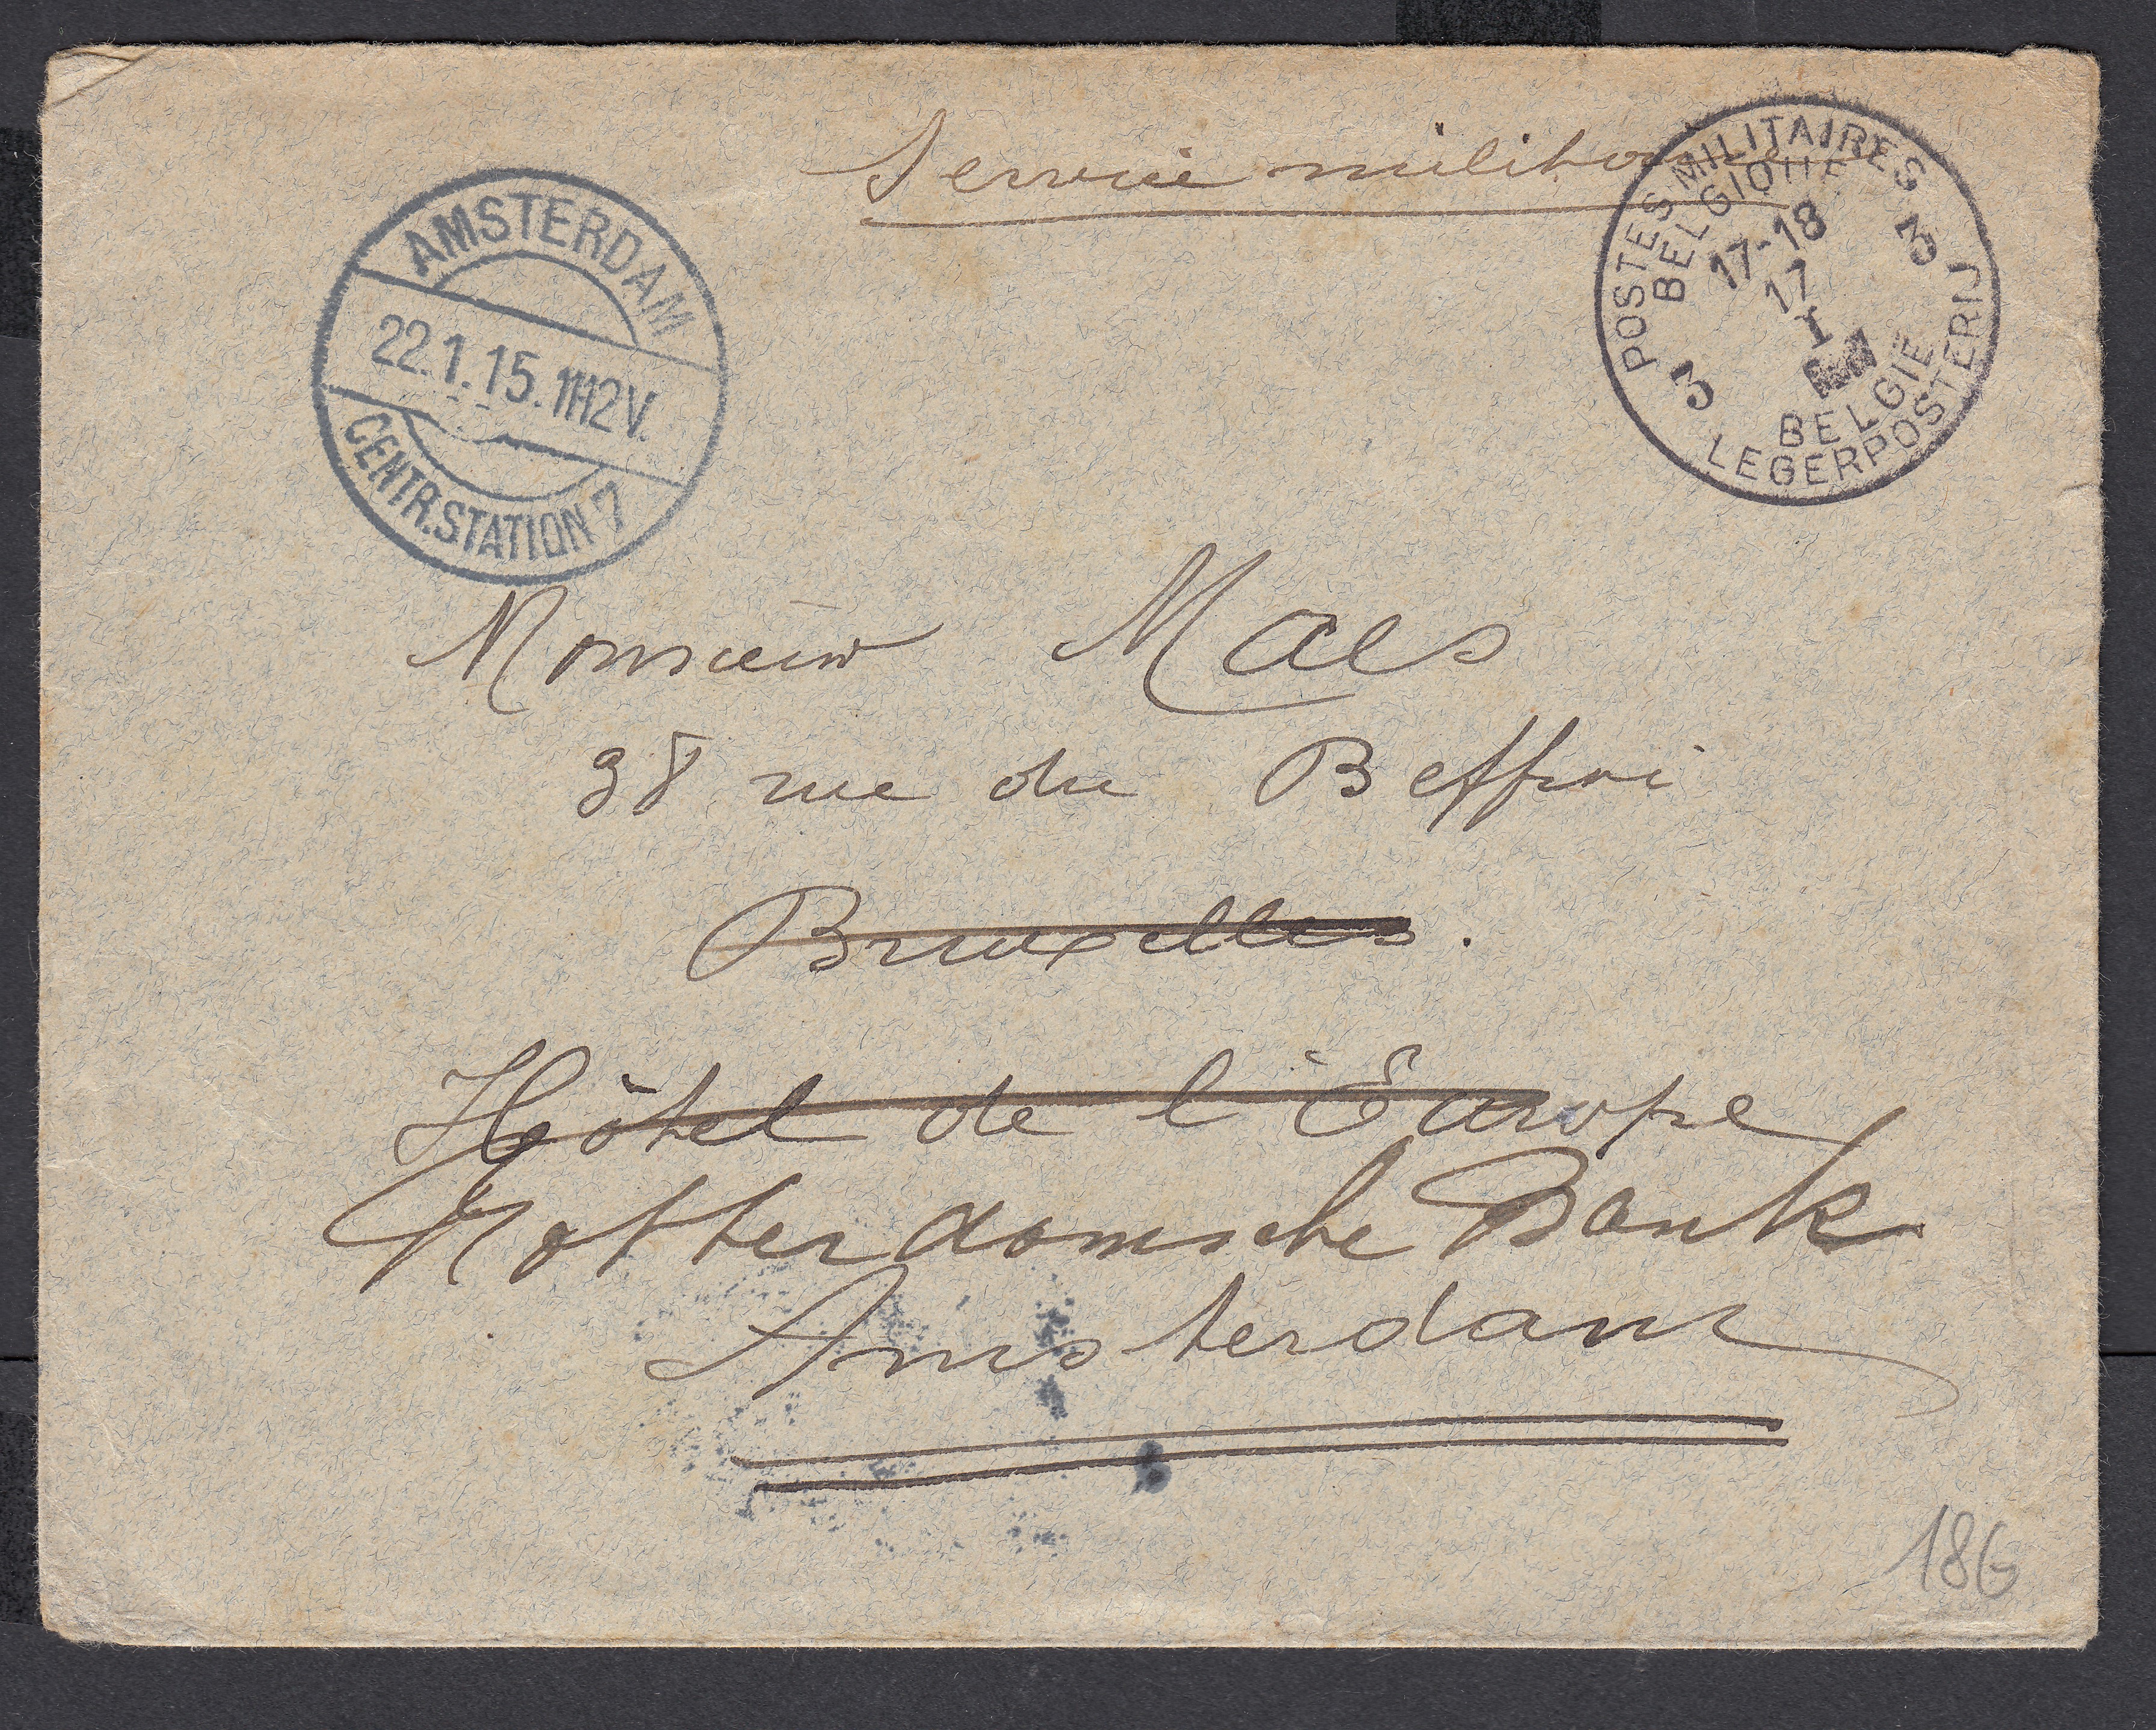 Service militaire
AMSTERDAM
22.1.15.11-12V.
CENTR.STATION 7
POSTES MILITAIRES
BELGIQUE
17-18
17
I
3
3
BELGIE
LEGERPOSTERIJ
Monsieur Maes
38 rue du Beffroi
Bruxelles.
Hôtel de l'Europe
Rotterdamsche Bank
Amsterdam
186